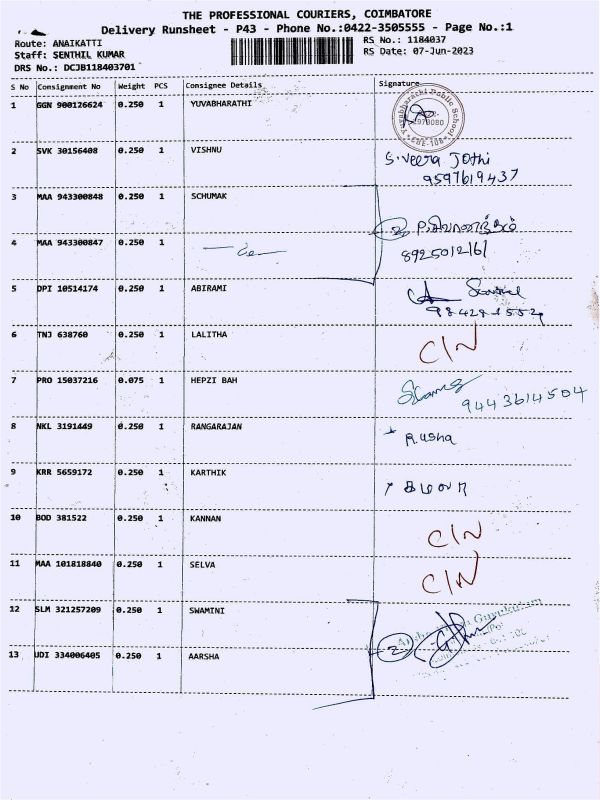 THE PROFESSIONAL COURIERS, COIMBATORE
Delivery Runsheet - P43 - Phone No.:0422-3505555 - Page No.:1
Route: ANAIKATTI
Staff: SENTHIL KUMAR
DRS No.: DCJB118403701
RS No.: 1184037
RS Date: 07-Jun-2023
S No Consignment No Weight PCS Consignee Details Signature
1 GGN 900126624 0.250 1 YUVABHARATHI
Yuvabharathi Public School
2 SVK 30156408 0.250 1 VISHNU S.Veera Jothi
9597619437
3 MAA 943300848 0.250 1 SCHUMAK
4 MAA 943300847 0.250 1
8925012161
5 DPI 10514174 0.250 1 ABIRAMI
6 TNJ 638760 0.250 1 LALITHA C/N
7 PRO 15037216 0.075 1 HEPZI BAH 9443614504
8 NKL 3191449 0.250 1 RANGARAJAN R.usha
9 KRR 5659172 0.250 1 KARTHIK
10 BOD 381522 0.250 1 KANNAN C/N
11 MAA 101818840 0.250 1 SELVA C/N
12 SLM 321257209 0.250 1 SWAMINI
13 UDI 334006405 0.250 1 AARSHA 2